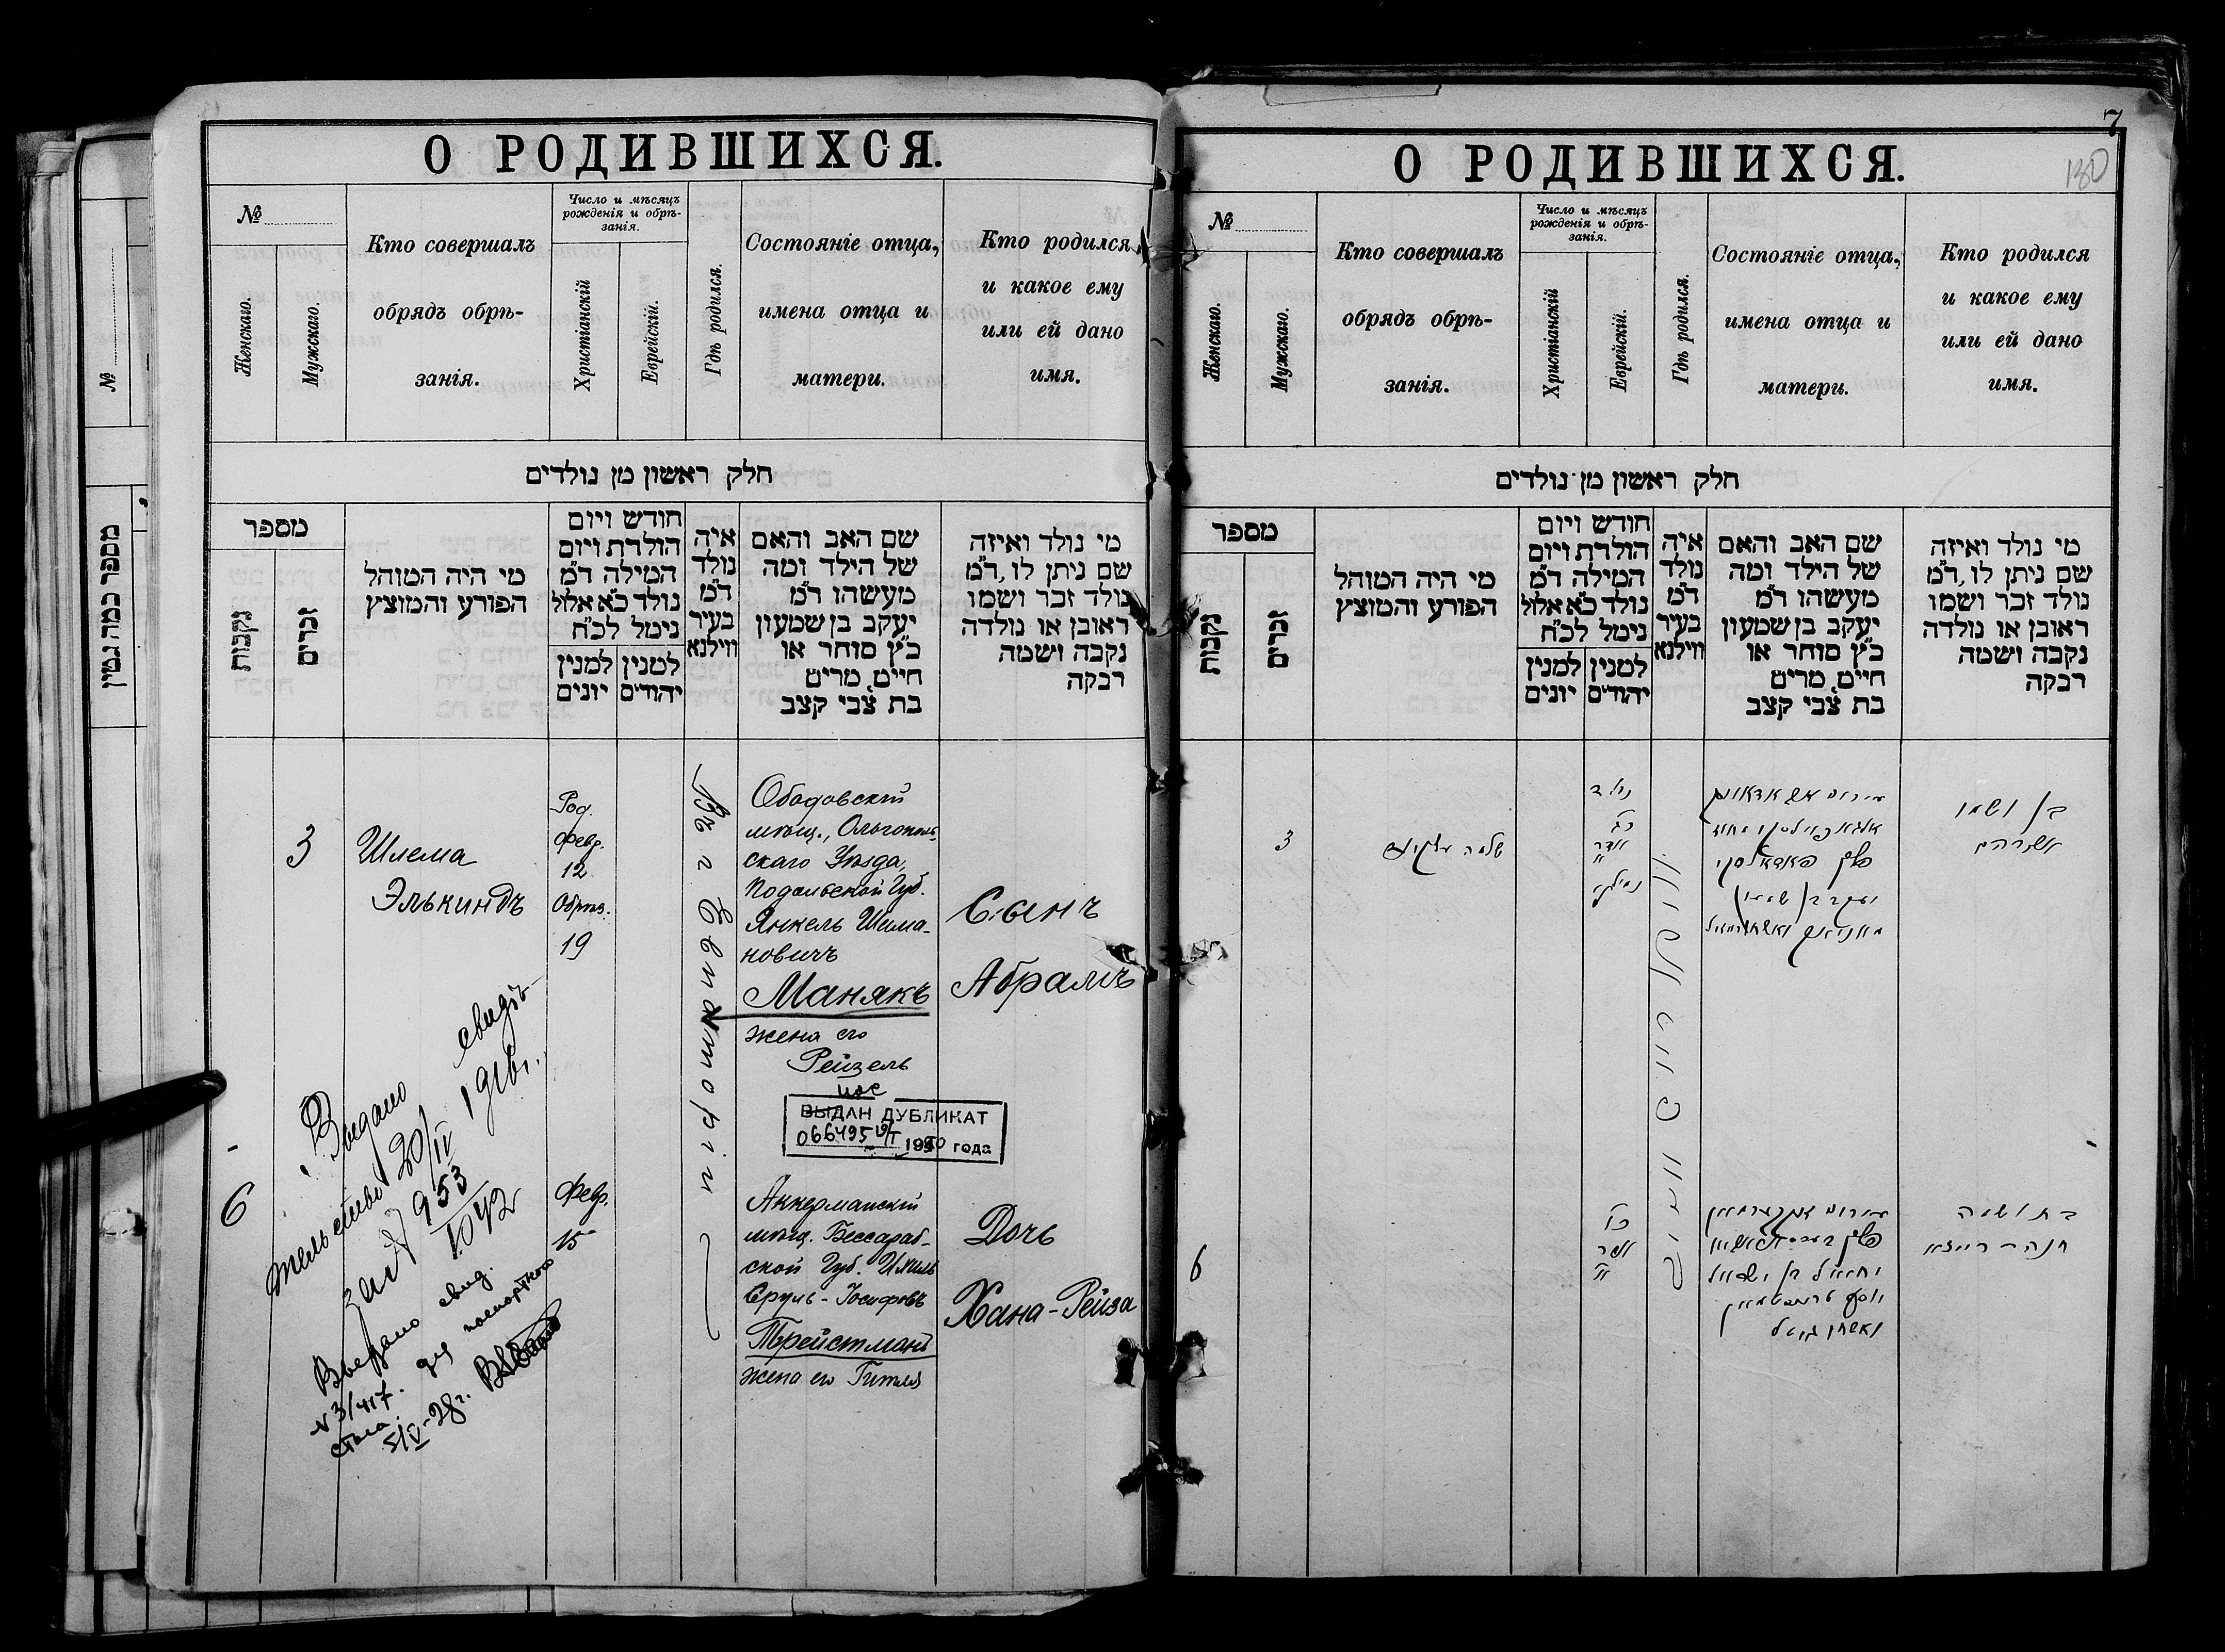 О РОДИВШИХСЯ.
№
Женскаго.
Мужскаго.
Кто совершалъ
обрядъ обрѣ-
занія.
Число и мѣсяцъ
рожденія и обрѣ-
занія.
Христіанскій
Еврейскій.
Гдѣ родился.
Состояніе отца,
имена отца и
матери.
Кто родился
и какое ему
или ей дано
имя.
חלק ראשון מן נולדים
מספר
נקבות
זכרים
מי היה המוהל
הפורע והמוצץ
חודש ויום
הולדת ויום
המילה ד״מ
נולד כ״א אלול
נימל לכ״ח
למנין יהודים
למנין יונים
איה
נולד
ד״מ
בעיר
ווילנא
שם האב והאם
של הילד ומה
מעשהו ד״מ
יעקב בן שמעון
כ״ץ סוחר או
חיים, מרים
בת צבי קצב
מי נולד ואיזה
שם ניתן לו, ד״מ
נולד זכר ושמו
ראובן או נולדה
נקבה ושמה
רבקה
3
Шлема
Элькиндъ
Род.
Февр.
12
Обрѣз.
19
Въ г. Евпаторіи
Ободовскій
мѣщ., Ольгополь-
скаго Уѣзда,
Подольской Губ.
Янкель Шима-
новичъ
Манякъ
жена его
Рейзель
Сынъ
Абрамъ
ВЫДАН ДУБЛИКАТ
066495
1950 года
Выдано свидѣ-
тельство 20/IV 1916 г.
за № 953
1042
Выдано свид.
№ 3/417. для паспортного
стола.
5/V-28 г.
6
Февр.
15
Аккерманскій
мѣщ. Бессараб-
ской Губ. Ихиль
Сруль-Іосифовъ
Трейстманъ
жена его Гитля
Дочь
Хана-Рейза
№
מספר כמה גטין
7
130
О РОДИВШИХСЯ.
№
Женскаго.
Мужскаго.
Кто совершалъ
обрядъ обрѣ-
занія.
Число и мѣсяцъ
рожденія и обрѣ-
занія.
Христіанскій
Еврейскій.
Гдѣ родился.
Состояніе отца,
имена отца и
матери.
Кто родился
и какое ему
или ей дано
имя.
חלק ראשון מן נולדים
מספר
נקבות
זכרים
מי היה המוהל
הפורע והמוצץ
חודש ויום
הולדת ויום
המילה ד״מ
נולד כ״א אלול
נימל לכ״ח
למנין יהודים
למנין יונים
איה
נולד
ד״מ
בעיר
ווילנא
שם האב והאם
של הילד ומה
מעשהו ד״מ
יעקב בן שמעון
כ״ץ סוחר או
חיים, מרים
בת צבי קצב
מי נולד ואיזה
שם ניתן לו, ד״מ
נולד זכר ושמו
ראובן או נולדה
נקבה ושמה
רבקה
3
שלמה
נולד
אדר
יעקב בן
בן ושמו
אברהם
6
אדר
יחיאל בן ישראל
יוסף טרייסטמאן
ואשתו גיטל
בת ושמה
חנה-רייזא